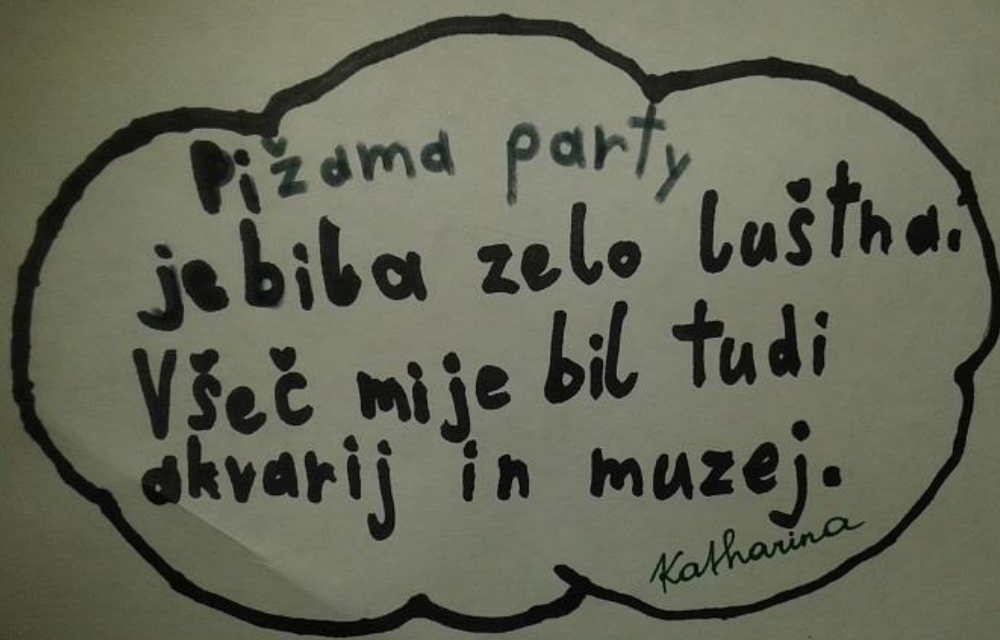 Pižama party
je bila zelo luštna.
Všeč mi je bil tudi
akvarij in muzej.
Katharina